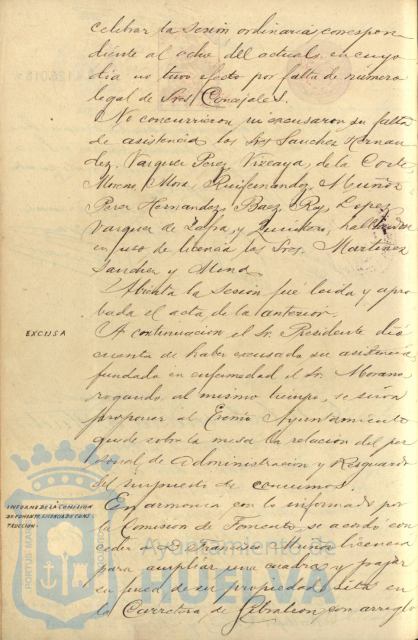 celebrar la sesión ordinaria correspon
diente al ocho del actual, en cuyo
dia no tuvo efecto por falta de número
legal de Sres. Concejales.
No concurrieron, ni excusaron su falta
de asistencia los Sres Sanchez Hernan
dez, Vazquez Perez, Vizcaya, de la Corte,
Moreno, Mora, Ruifernandez, Muñoz
Perez Hernandez, Baez, Roy, Lopez
Vazquez de Zafra, y
en uso de licencia los Sres. Martinez
Sanchez y Mena
Abierta la sesión fué leida y apro
bada el acta de la anterior.
EXCUSA
A continuacion el Sr. Presidente dió
cuenta de haber excusado su asistencia,
fundada en enfermedad el Sr. Morano,
rogando, al mismo tiempo, se sirva
proponer al Excmo Ayuntamiento
quede sobre la mesa la relacion del per
sonal de Administracion y Resguardo
del impuesto de consumos.
INFORME DE LA COMISION
DE FOMENTO, LICENCIA DE CONS
TRUCCION.
En armonia con lo informado por
la Comision de Fomento, se acordó con
ceder a D. Francisco Muñoz licencia
para ampliar una cuadra y pajar
en finca de su propiedad sita en
la Carretera de Gibraleon con arreglo
PORTUS MARIS
Ayuntamiento de
HUELVA